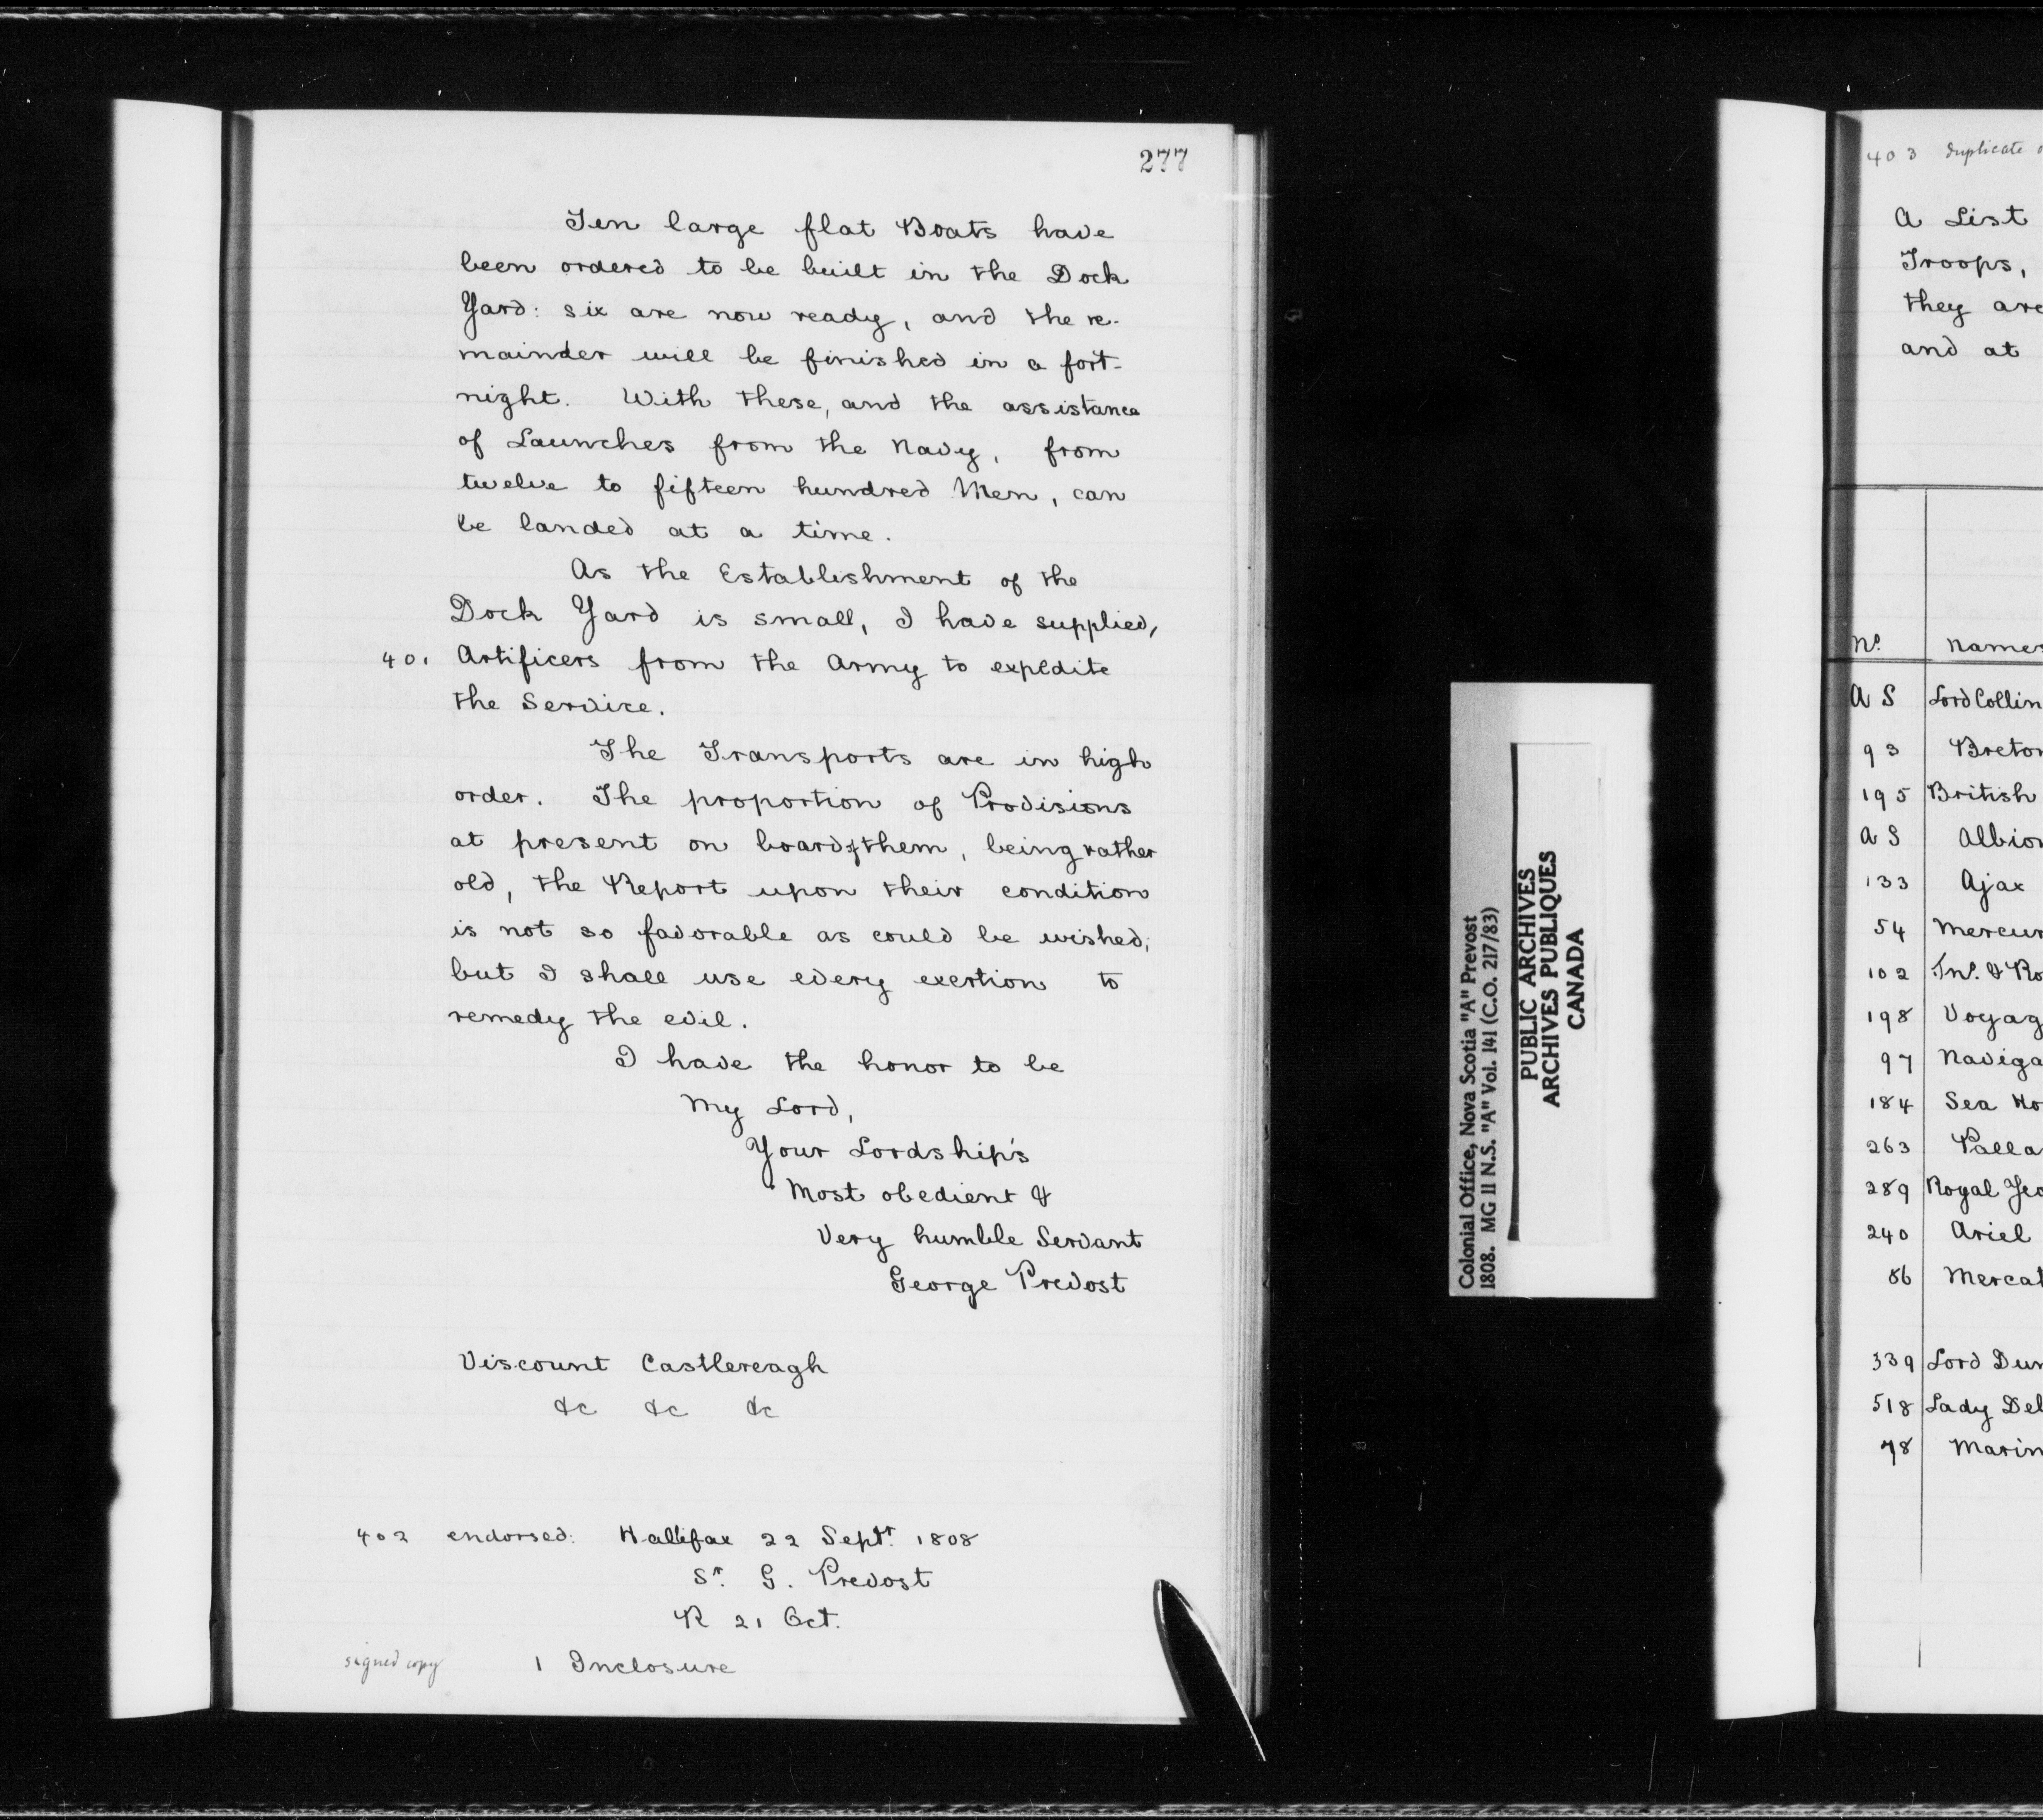 277
Ten large flat Boats have
been ordered to be built in the Dock
Yard: six are now ready, and the re-
mainder will be finished in a fort-
night. With these, and the assistance
of Launches from the Navy, from
twelve to fifteen hundred Men, can
be landed at a time.
As the Establishment of the
Dock Yard is small, I have supplied,
401 Artificers from the Army to expedite
the Service.
The Transports are in high
order. The proportion of Provisions
at present on board of them, being rather
old, the Report upon their condition
is not so favorable as could be wished;
but I shall use every exertion to
remedy the evil.
I have the honor to be
My Lord,
Your Lordship's
Most obedient &
Very humble Servant
George Prevost
Viscount Castlereagh
&c &c &c
402 endorsed: Hallifax 22 Septr. 1808
Sr. G. Prevost
R 21 Oct.
signed copy 1 Inclosure
Colonial Office, Nova Scotia "A" Prevost
1808. MG 11 N.S. "A" Vol. 141 (C.O. 217/83)
PUBLIC ARCHIVES
ARCHIVES PUBLIQUES
CANADA
403 duplicate
A List
Troops,
they are
and at
No. Names
A S Lord Collin
93 Breton
195 British
A S Albion
133 Ajax
54 Mercur
102 Jno. & Ro
198 Voyag
97 Naviga
184 Sea Ho
263 Palla
289 Royal Geo
240 Ariel
86 Mercat
339 Lord Dun
518 Lady Del
78 Marin